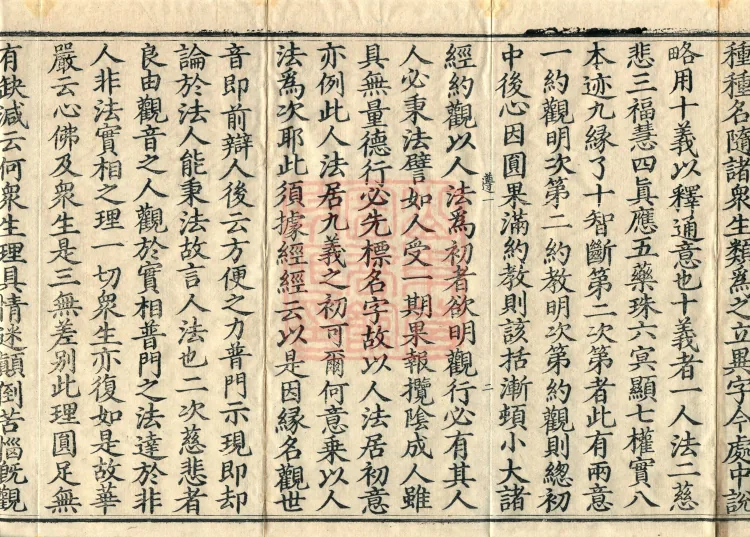 種種名隨諸衆生類為之立異字今處中說
略用十義以釋通意也十義者一人法二慈
悲三福慧四眞應五藥珠六冥顯七權實八
本迹九緣了十智斷第二次第者此有兩意
一約觀明次第二約教明次第約觀則總初
中後心因圓果滿約教則該括漸頓小大諸
二
經約觀以人法為初者欲明觀行必有其人
人必秉法譬如人受一期果報攬陰成人雖
具無量德行必先標名字故以人法居初意
亦例此人法居九義之初可爾何意乗以人
法為次耶此須據經經云以是因緣名觀世
音即前辯人後云方便之力普門示現即却
論於法人能秉法故言人法也二次慈悲者
良由觀音之人觀於實相普門之法達於非
人非法實相之理一切衆生亦復如是故華
嚴云心佛及衆生是三無差別此理圓足無
有缺減云何衆生理具情迷顛倒苦惱旣觀